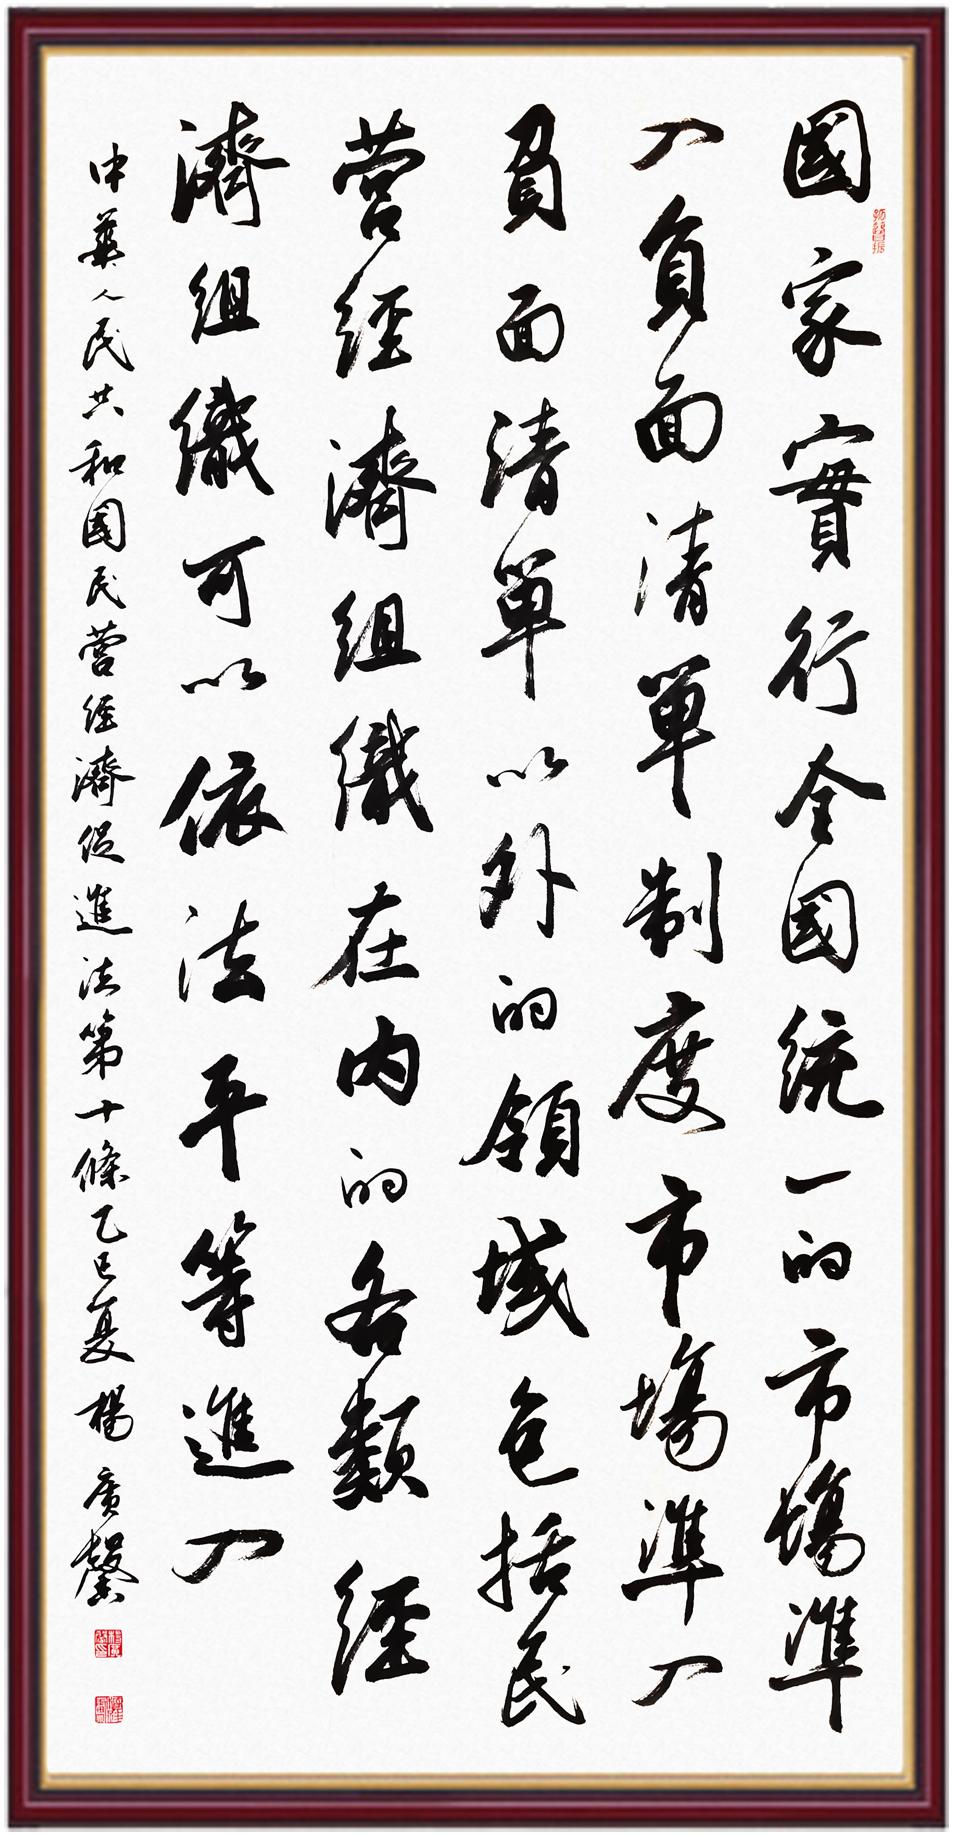 國家實行全國統一的市場準
入負面清單制度市場準入
負面清單以外的領域包括民
營經濟組織在內的各類經
濟組織可以依法平等進入
中華人民共和國民營經濟促進法第十條乙巳夏楊廣馨